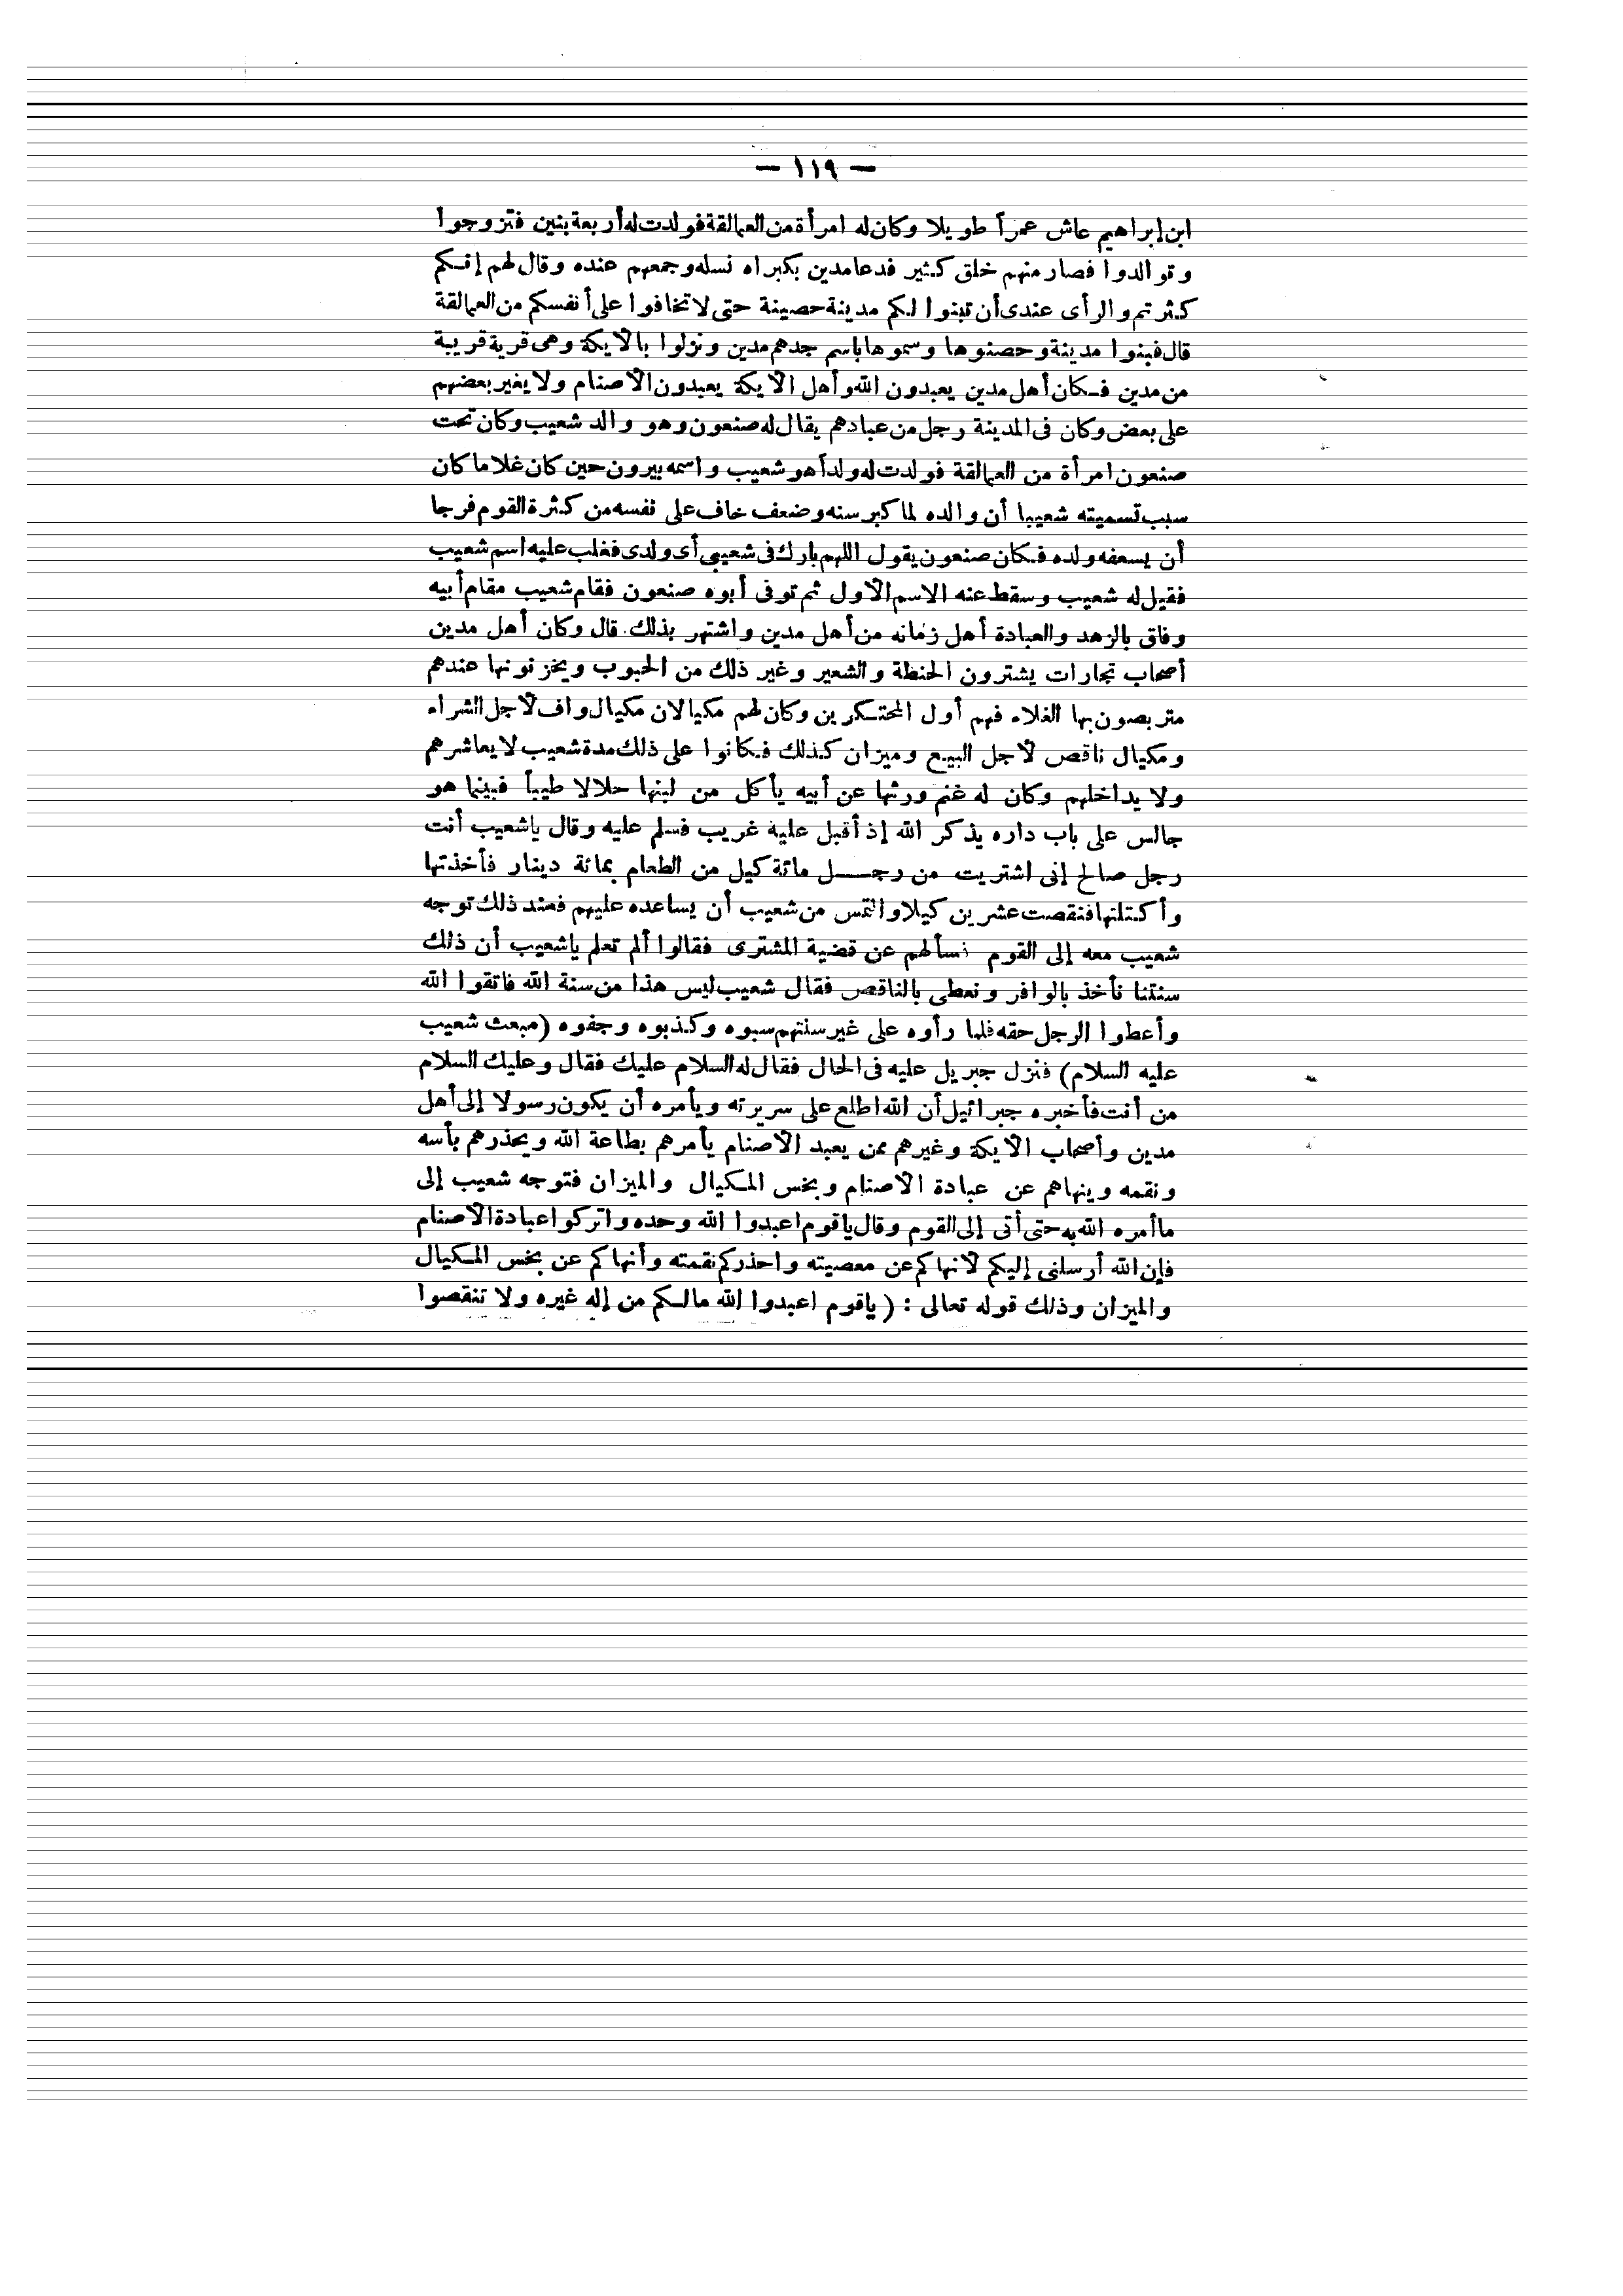 — ١١٩ —
ابن إبراهيم عاش عمراً طويلا وكان له امرأة من العمالقة فولدت له أربعة بنين فتزوجوا
وتوالدوا فصار منهم خلق كثير فدعا مدين بكبراه نسله وجمعهم عنده وقال لهم إنكم
كثرتم والرأى عندى أن تبنوا لكم مدينة حصينة حتى لا تخافوا على أنفسكم من العمالقة
قال فبنوا مدينة وحصنوها وسموها باسم جدهم مدين ونزلوا بالأيكة وهى قرية قريبة
من مدين فكان أهل مدين يعبدون الله وأهل الأيكة يعبدون الأصنام ولا يغير بعضهم
على بعض وكان فى المدينة رجل من عبادهم يقال له صنعون وهو والد شعيب وكان تحت
صنعون امرأة من العمالقة فولدت له ولداً هو شعيب واسمه بيرون حين كان غلاما كان
سبب تسميته شعيبا أن والده لما كبر سنه وضعف خاف على نفسه من كثرة القوم فرجا
أن يسعفه ولده فكان صنعون يقول اللهم بارك فى شعيبى أى ولدى فغلب عليه اسم شعيب
فقيل له شعيب وسقط عنه الاسم الأول ثم توفى أبوه صنعون فقام شعيب مقام أبيه
وفاق بالزهد والعبادة أهل زمانه من أهل مدين واشتهر بذلك. قال وكان أهل مدين
أصحاب تجارات يشترون الحنطة والشعير وغير ذلك من الحبوب ويخزنونها عندهم
متربصون بها الغلاء فهم أول المحتكرين وكان لهم مكيالان مكيال واف لأجل الشراء
ومكيال ناقص لأجل البيع وميزان كذلك فكانوا على ذلك مدة شعيب لا يعاشرهم
ولا يداخلهم وكان له غنم ورثها عن أبيه يأكل من لبنها حلالا طيباً فبينما هو
جالس على باب داره يذكر الله إذ أقبل عليه غريب فسلم عليه وقال ياشعيب أنت
رجل صالح إنى اشتريت من رجل مائة كيل من الطعام بمائة دينار فأخذتها
وأكتلتها فنقصت عشرين كيلا والتمس من شعيب أن يساعده عليهم فعند ذلك توجه
شعيب معه إلى القوم نسألهم عن قضية المشترى فقالوا ألم تعلم ياشعيب أن ذلك
سنتنا نأخذ بالوافر ونعطى بالناقص فقال شعيب ليس هذا من سنة الله فاتقوا الله
وأعطوا الرجل حقه فلما رأوه على غير سنتهم سبوه وكذبوه وجفوه (مبعث شعيب
عليه السلام) فنزل جبريل عليه فى الحال فقال له السلام عليك فقال وعليك السلام
من أنت فأخبره جبرائيل أن الله اطلع على سريرته ويأمره أن يكون رسولا إلى أهل
مدين وأصحاب الأيكة وغيرهم ممن يعبد الأصنام يأمرهم بطاعة الله ويحذرهم بأسه
ونقمه وينهاهم عن عبادة الأصنام وبخس المكيال والميزان فتوجه شعيب إلى
ما أمره الله به حتى أتى إلى القوم وقال ياقوم اعبدوا الله وحده واتركوا عبادة الأصنام
فإن الله أرسلنى إليكم لأنهاكم عن معصيته واحذركم نقمته وأنهاكم عن بخس المكيال
والميزان وذلك قوله تعالى : ( ياقوم اعبدوا الله مالكم من إله غيره ولا تنقصوا